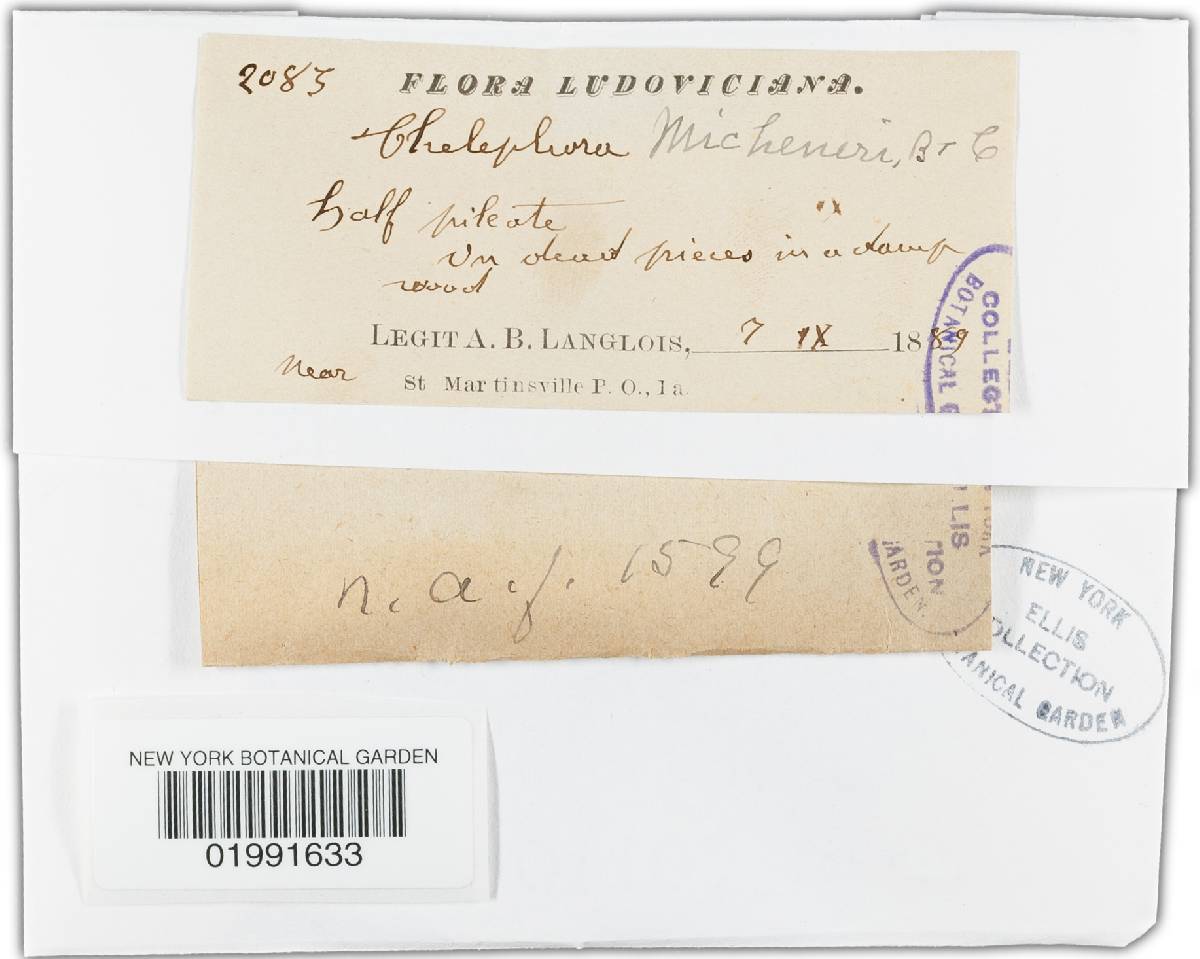 2085 FLORA LUDOVICIANA.
Thelephora Micheneri, B & C
half pileate
On dead pieces in a damp
wood
LEGIT A. B. LANGLOIS, 7 IX 1889
Near St Martinsville P. O., La.
COLLECT
BOTANICAL G
n. a. f. 1599
LIS
TION
ARDEN.
NEW YORK
ELLIS
OLLECTION
ANICAL GARDEN
NEW YORK BOTANICAL GARDEN
01991633